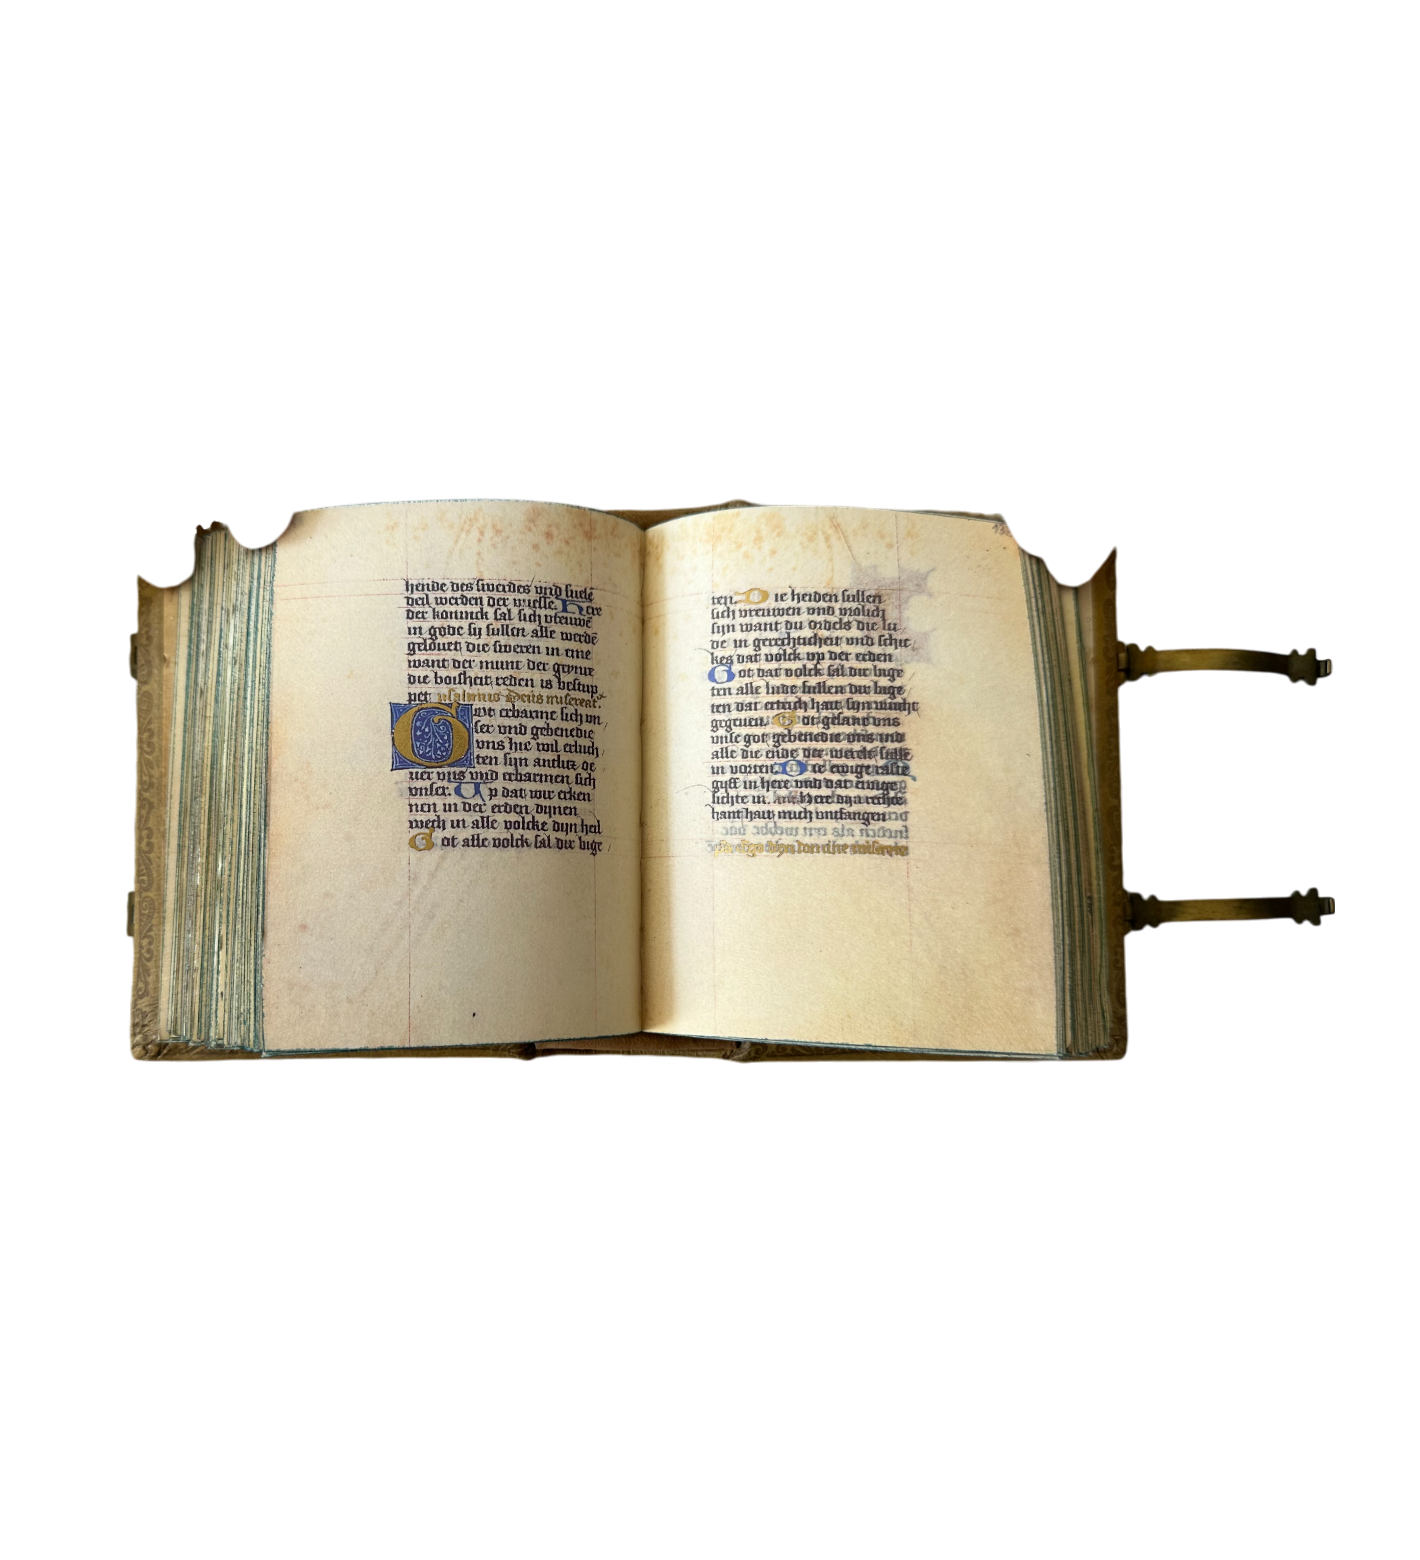 hende des swerdes vnd suele
deil werden der vuesse. Here
der koninck sal sich vreuwē
in gode sy sullen alle werdē
gelouet die sweren in eme
want der munt der geynre
die bosheit reden is vestup
pet. psalmus Deus misereat.
Got erbarme sich vn
ser vnd gebenedie
vns hie wil erluch
ten syn antlitz oe
uer vns vnd erbarmen sich
vnser. Up dat wir erken
nen in der erden dynen
wech in alle volcke dyn heil
Got alle volck sal dir bige
ten. Die heiden sullen
sich vreuwen vnd vrolich
syn want du ordels die lu
de in gerechticheit vnd schic
kes dat volck vp der erden
Got dat volck sal dir bige
ten alle lude sullen dir bige
ten dat ertrich hait syn vrucht
gegeuen. Got gesane vns
vnse got gebenedie vns vnd
alle die ende der werelt sulle
in vorten. Die ewige raste
gyff in here vnd dat ewige
lichte in. Here dyn rechte
hant hait mich untfangen